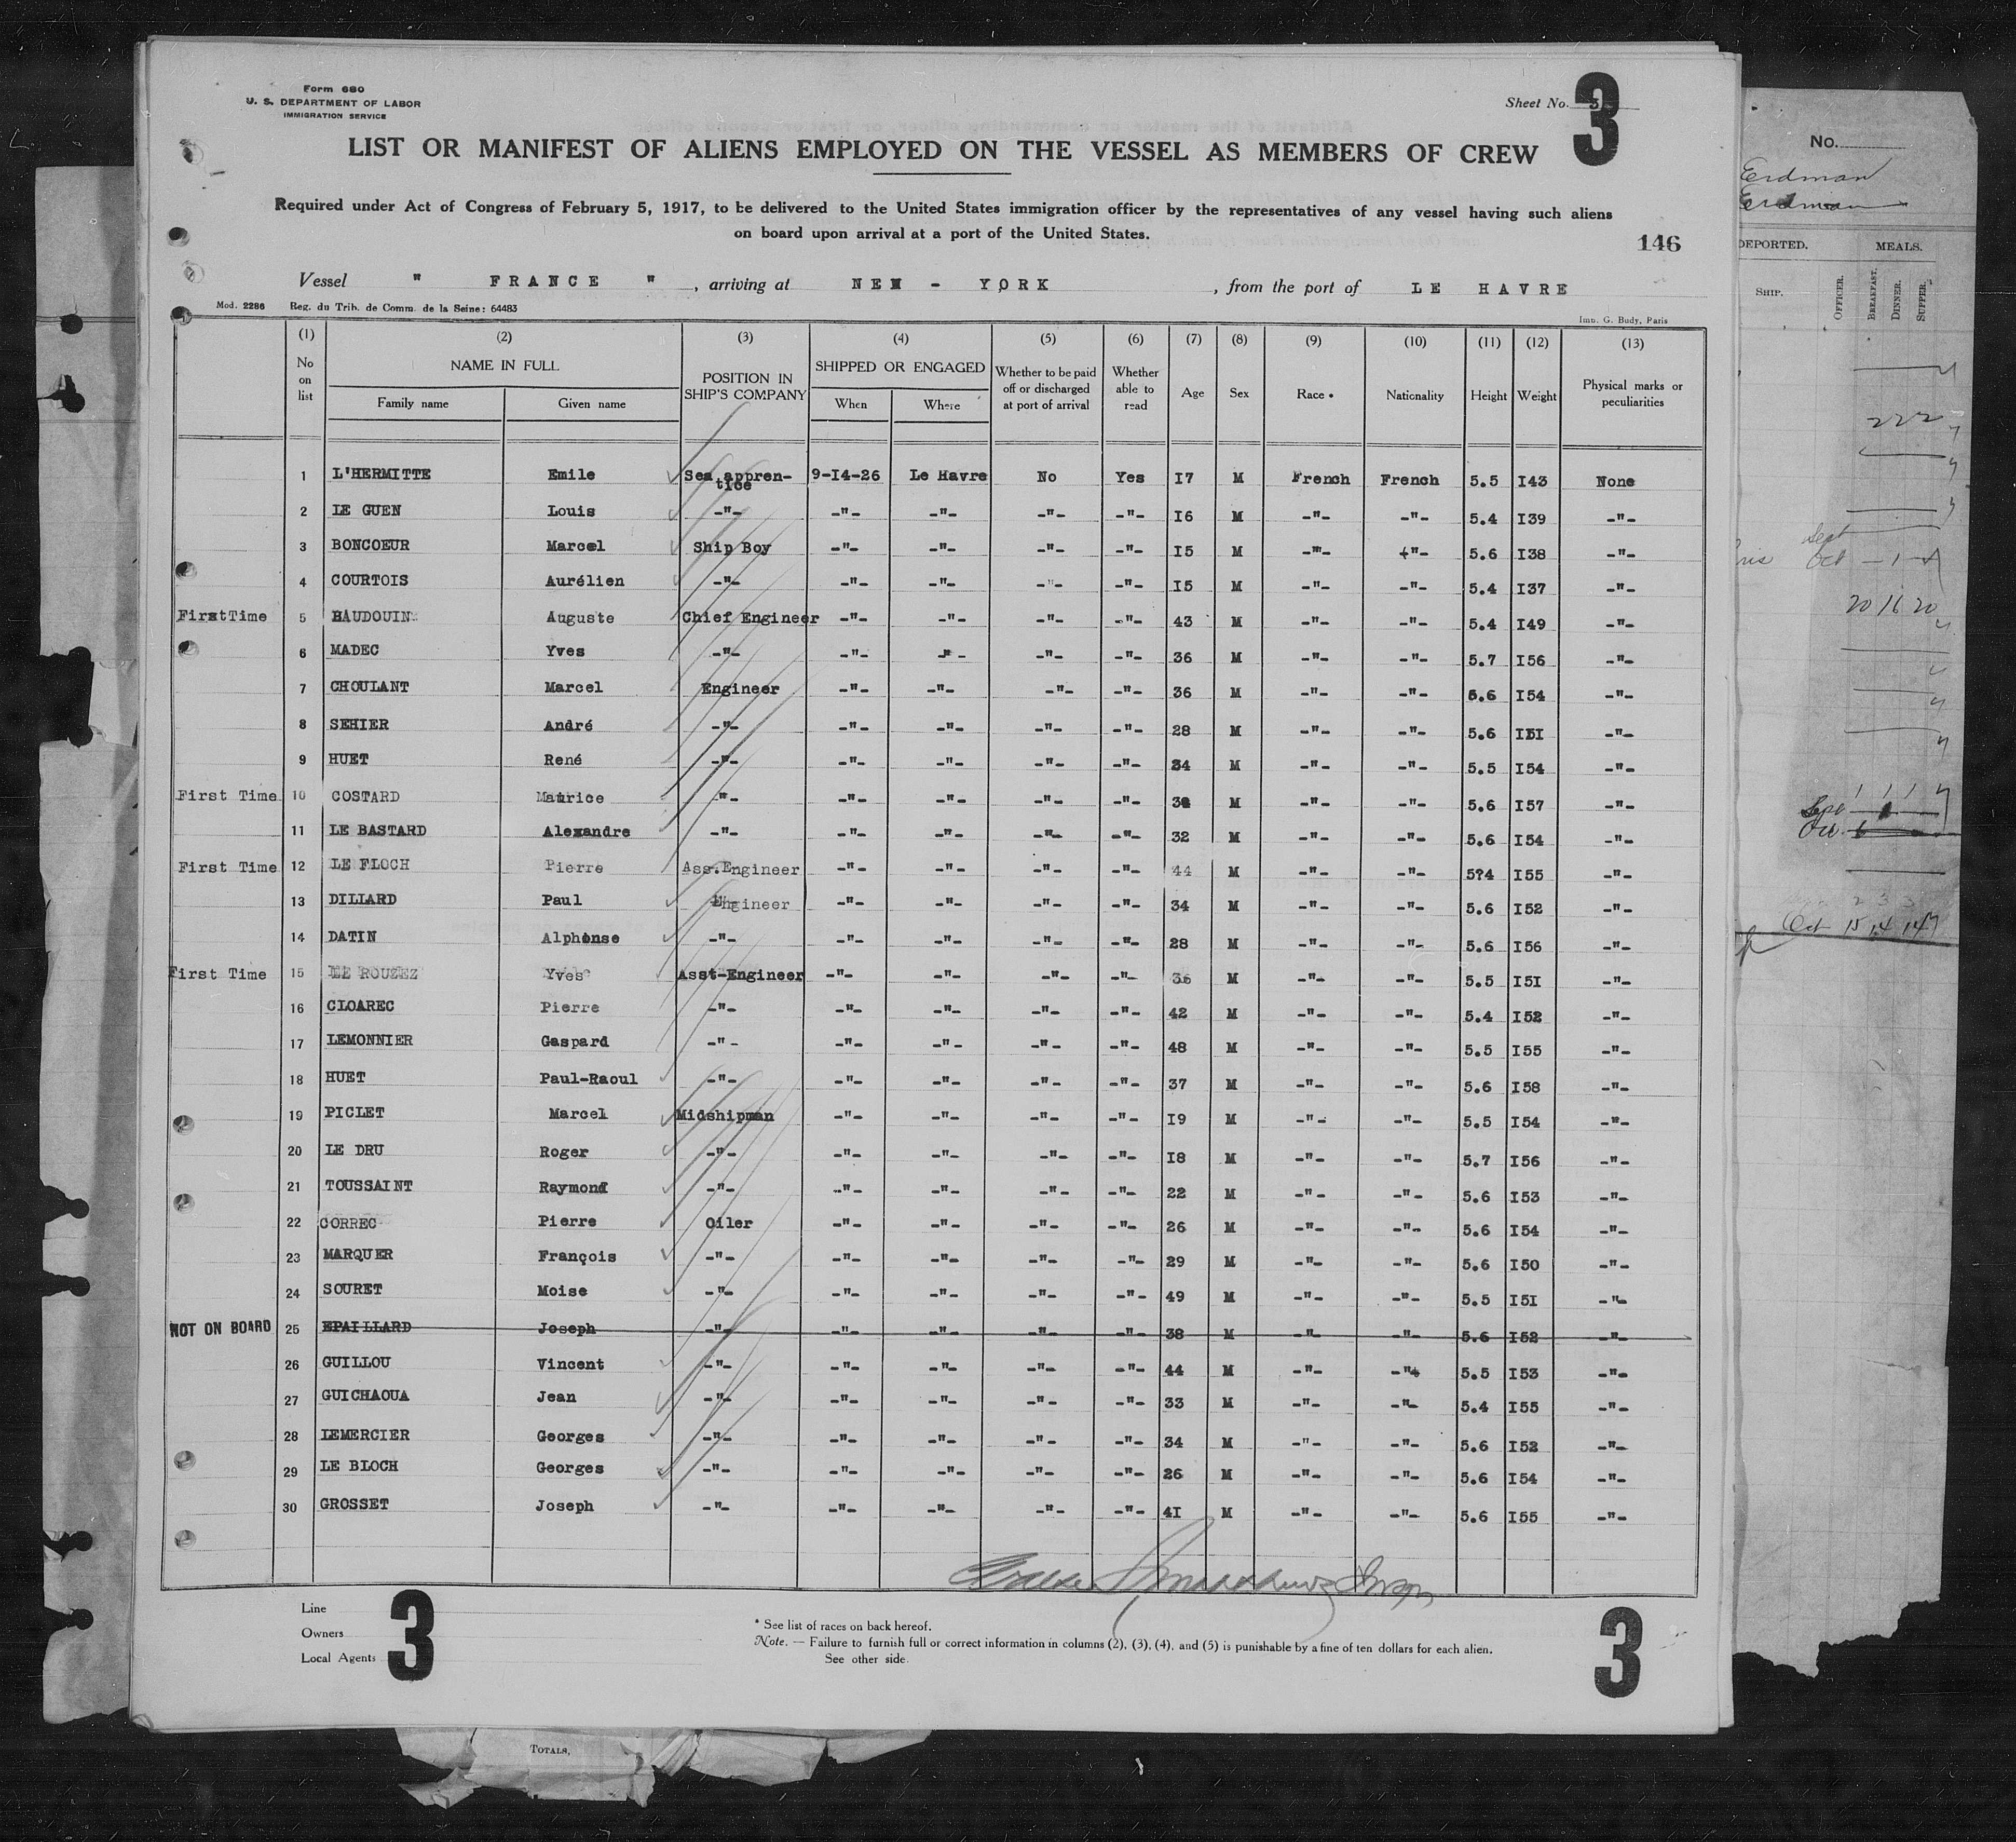 Form 680
U. S. DEPARTMENT OF LABOR
IMMIGRATION SERVICE
Sheet No. 3
3
LIST OR MANIFEST OF ALIENS EMPLOYED ON THE VESSEL AS MEMBERS OF CREW
Required under Act of Congress of February 5, 1917, to be delivered to the United States immigration officer by the representatives of any vessel having such aliens
on board upon arrival at a port of the United States.
146
Vessel " FRANCE " , arriving at NEW - YORK , from the port of LE HAVRE
Mod. 2286 Reg. du Trib. de Comm. de la Seine: 64483
Imp. G. Budy, Paris
(1) (2) (3) (4) (5) (6) (7) (8) (9) (10) (11) (12) (13)
No on list NAME IN FULL POSITION IN SHIP'S COMPANY SHIPPED OR ENGAGED Whether to be paid off or discharged at port of arrival Whether able to read Age Sex Race * Nationality Height Weight Physical marks or peculiarities
Family name Given name When Where
1 L'HERMITTE Emile Sea apprentice 9-14-26 Le Havre No Yes 17 M French French 5.5 143 None
2 LE GUEN Louis -"- -"- -"- -"- -"- 16 M -"- -"- 5.4 139 -"-
3 BONCOEUR Marcel Ship Boy -"- -"- -"- -"- 15 M -"- -"- 5.6 138 -"-
4 COURTOIS Aurélien -"- -"- -"- -"- -"- 15 M -"- -"- 5.4 137 -"-
First Time 5 BAUDOUIN Auguste Chief Engineer -"- -"- -"- -"- 43 M -"- -"- 5.4 149 -"-
6 MADEC Yves -"- -"- -"- -"- -"- 36 M -"- -"- 5.7 156 -"-
7 CHOULANT Marcel Engineer -"- -"- -"- -"- 36 M -"- -"- 5.6 154 -"-
8 SEHIER André -"- -"- -"- -"- -"- 28 M -"- -"- 5.6 151 -"-
9 HUET René -"- -"- -"- -"- -"- 34 M -"- -"- 5.5 154 -"-
First Time 10 COSTARD Maurice -"- -"- -"- -"- -"- M -"- -"- 5.6 157 -"-
11 LE BASTARD Alexandre -"- -"- -"- -"- -"- 32 M -"- -"- 5.6 154 -"-
First Time 12 LE FLOCH Pierre Ass.Engineer -"- -"- -"- -"- 44 M -"- -"- 5?4 155 -"-
13 DILLARD Paul Engineer -"- -"- -"- -"- 34 M -"- -"- 5.6 152 -"-
14 DATIN Alphonse -"- -"- -"- -"- -"- 28 M -"- -"- 5.6 156 -"-
First Time 15 LE ROUZEZ Yves Asst-Engineer -"- -"- -"- -"- 36 M -"- -"- 5.5 151 -"-
16 CLOAREC Pierre -"- -"- -"- -"- -"- 42 M -"- -"- 5.4 152 -"-
17 LEMONNIER Gaspard -"- -"- -"- -"- -"- 48 M -"- -"- 5.5 155 -"-
18 HUET Paul-Raoul -"- -"- -"- -"- -"- 37 M -"- -"- 5.6 158 -"-
19 PICLET Marcel Midshipman -"- -"- -"- -"- 19 M -"- -"- 5.5 154 -"-
20 LE DRU Roger -"- -"- -"- -"- -"- 18 M -"- -"- 5.7 156 -"-
21 TOUSSAINT Raymond -"- -"- -"- -"- -"- 22 M -"- -"- 5.6 153 -"-
22 CORREC Pierre Oiler -"- -"- -"- -"- 26 M -"- -"- 5.6 154 -"-
23 MARQUER François -"- -"- -"- -"- -"- 29 M -"- -"- 5.6 150 -"-
24 SOURET Moise -"- -"- -"- -"- -"- 49 M -"- -"- 5.5 151 -"-
NOT ON BOARD 25 EPAILLARD Joseph -"- -"- -"- -"- -"- 38 M -"- -"- 5.6 152 -"-
26 GUILLOU Vincent -"- -"- -"- -"- -"- 44 M -"- -"- 5.5 153 -"-
27 GUICHAOUA Jean -"- -"- -"- -"- -"- 33 M -"- -"- 5.4 155 -"-
28 LEMERCIER Georges -"- -"- -"- -"- -"- 34 M -"- -"- 5.6 152 -"-
29 LE BLOCH Georges -"- -"- -"- -"- -"- 26 M -"- -"- 5.6 154 -"-
30 GROSSET Joseph -"- -"- -"- -"- -"- 41 M -"- -"- 5.6 155 -"-
Line
Owners
Local Agents
3
* See list of races on back hereof.
Note. — Failure to furnish full or correct information in columns (2), (3), (4), and (5) is punishable by a fine of ten dollars for each alien.
See other side.
3
TOTALS,
No.
Erdman
Erdman
DEPORTED. MEALS.
SHIP. OFFICER. BREAKFAST. DINNER. SUPPER.
222
Sept
Oct - 1 -
20 16 20
1 1 1
Oct 15 14 14